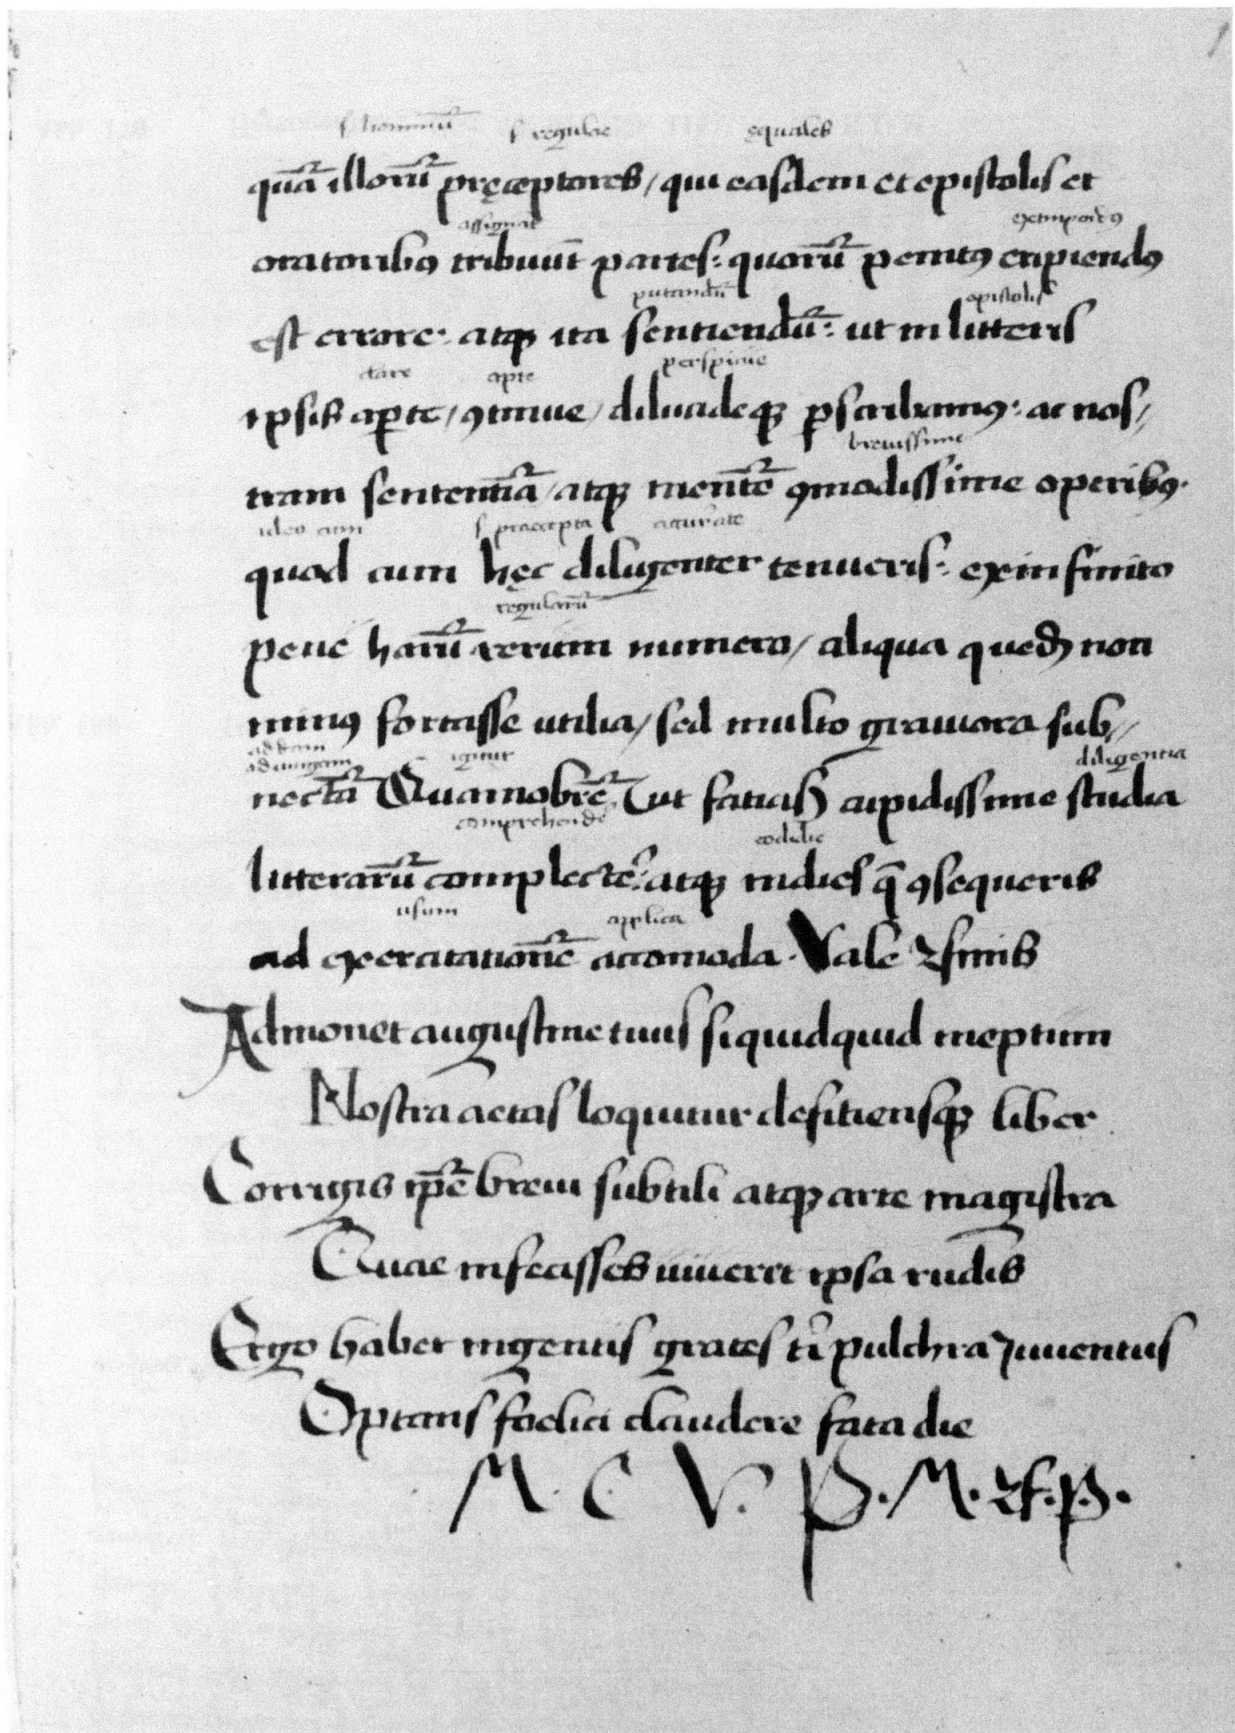 s. hominū s. regulae equales
quā illorū pręceptores / qui easdem et epistolis et
assignāt
oratoribꝰ tribuūt partes: quorū penitꝰ eripiendꝰ
putandū epistolis
est errore: atqꝫ ita sentiendū: ut in litteris
clare apte perspicue
ipsis aꝑte / ꝯcinne / dilucideqꝫ ꝑscribamꝰ: ac nos/
breuissime
tram sententiā / atqꝫ mentē ꝯmodissime operibꝰ.
ideo cum s. praecepta accurate
quod cum hęc diligenter tenueris: ex infinito
regularū
pene harū rerum numero / aliqua quedā non
minꝰ fortasse utilia / sed multo grauiora sub//
addam
adiungam igitur diligentia
nectā Quamobrē, ut facias cupidissime studia
comprehende cotidie
litterarū complectē: atqꝫ indies q̄ ꝯsequeris
usum applica
ad exercitationē accomoda. Vale ⁊ finis
Admonet augustine tuus si quid quid ineptum
Nostra aetas loquitur desitiensqꝫ liber
Corrigis ip̄ē breui subtili atqꝫ arte magistra
Quae ni fecisses uiueret ipsa rudis
Ergo habet ingentis grates tⁱ pulchra Iuuentus
Optans foelici claudere fata die
M. C. V. P. M. Rf. P.